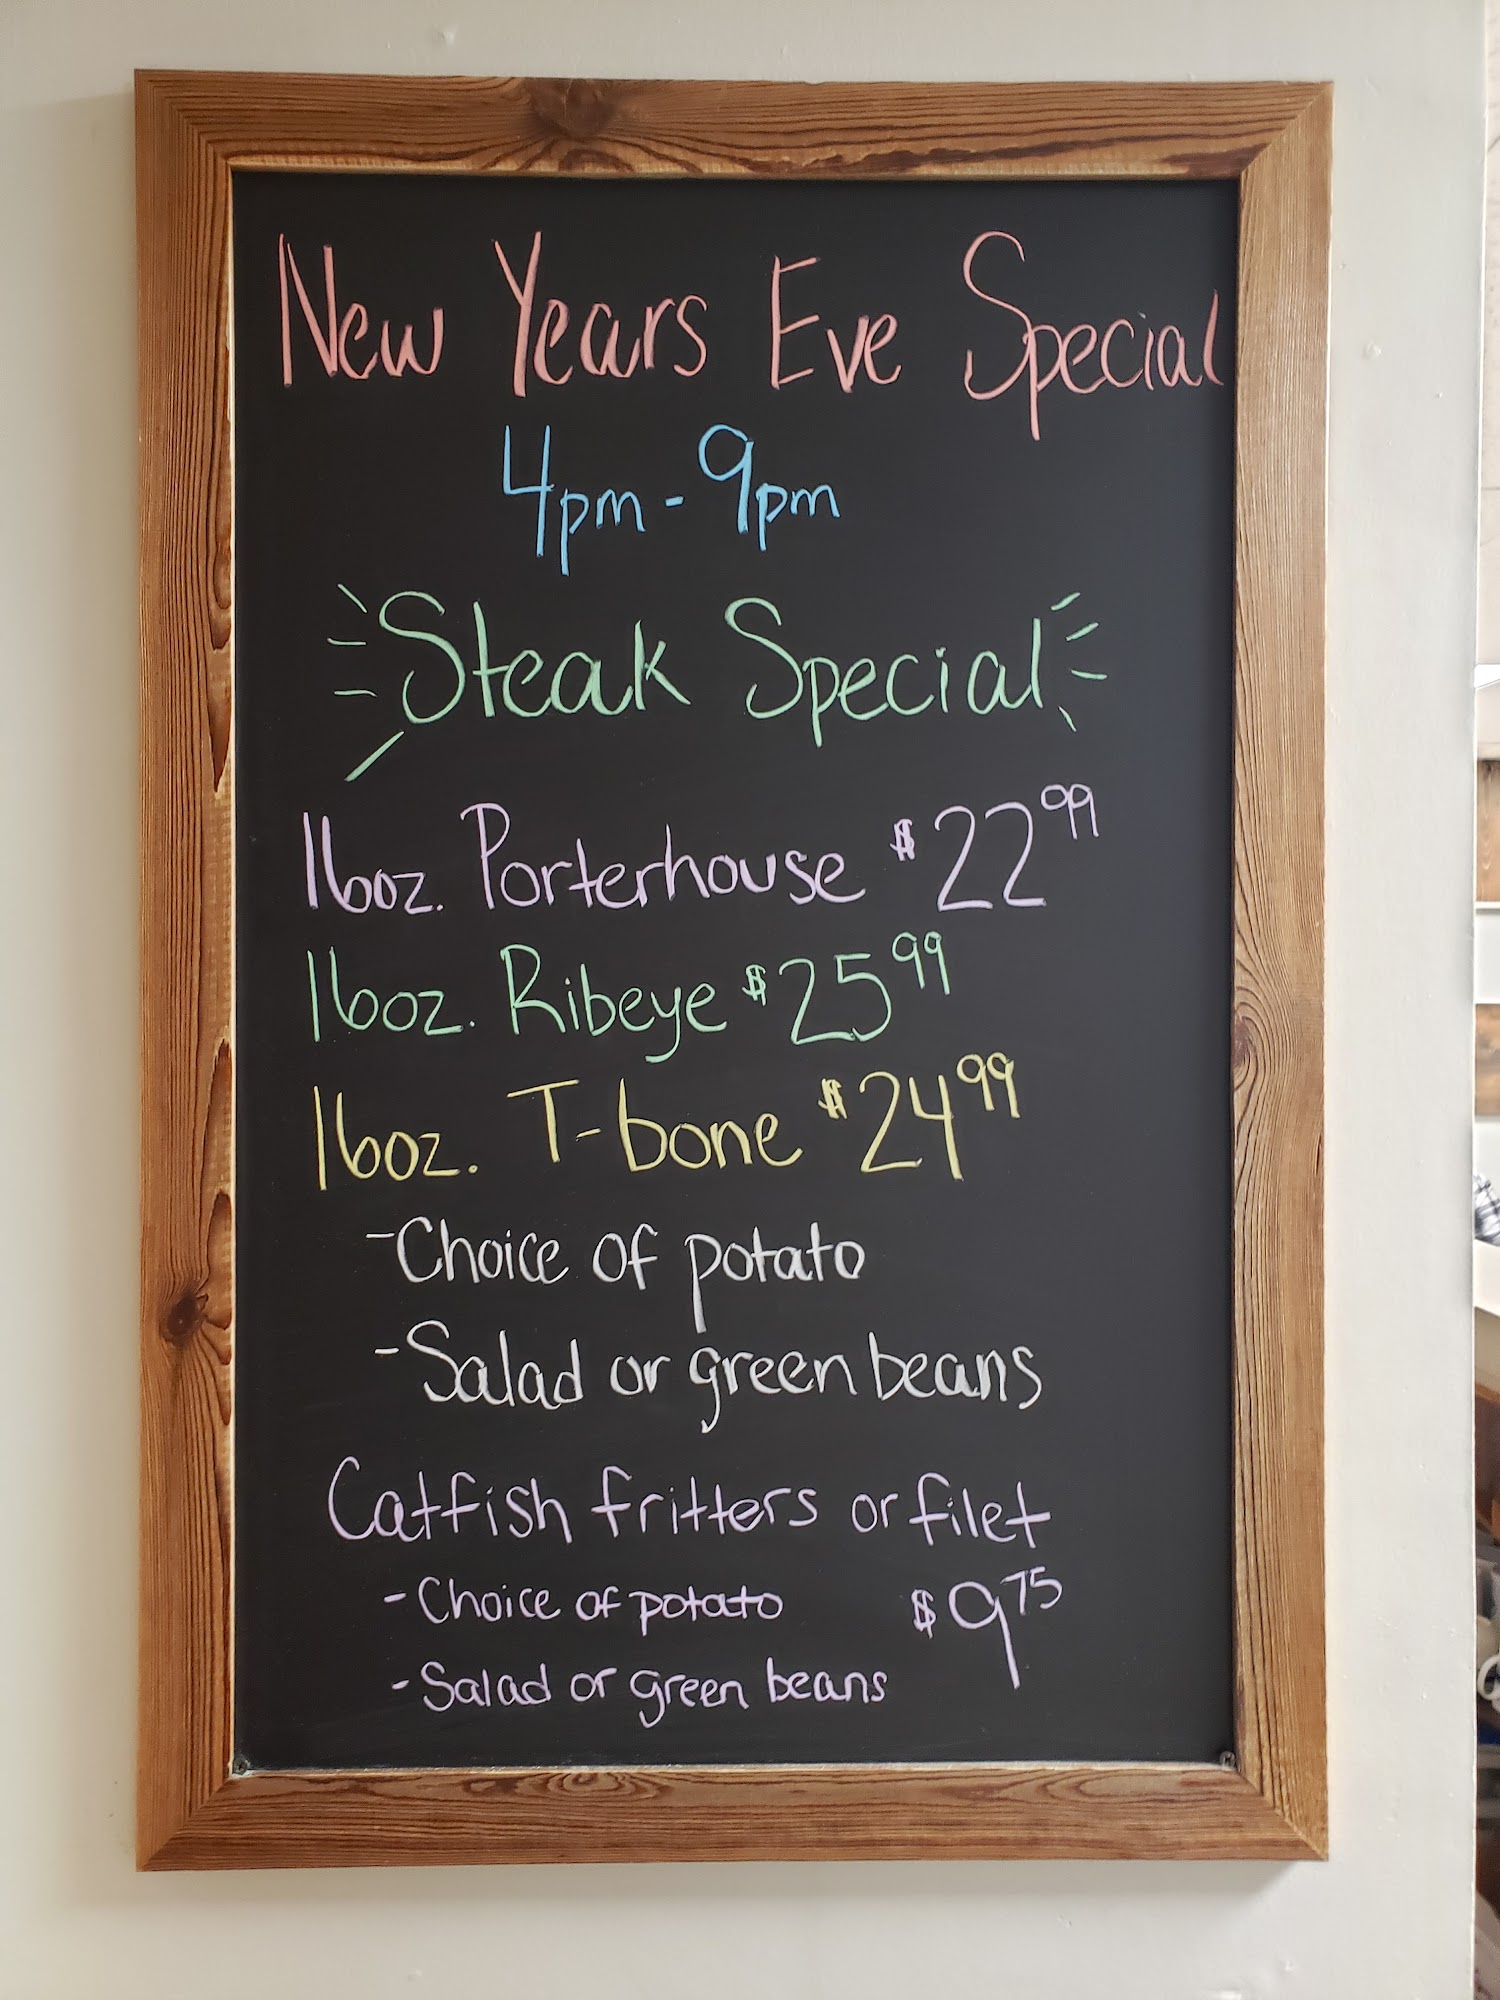 New Years Eve Special
4pm - 9pm
Steak Special
16oz. Porterhouse $22 99
16oz. Ribeye $25 99
16oz. T-bone $24 99
-Choice of potato
-Salad or green beans
Catfish fritters or filet
- Choice of potato $9 75
- Salad or green beans